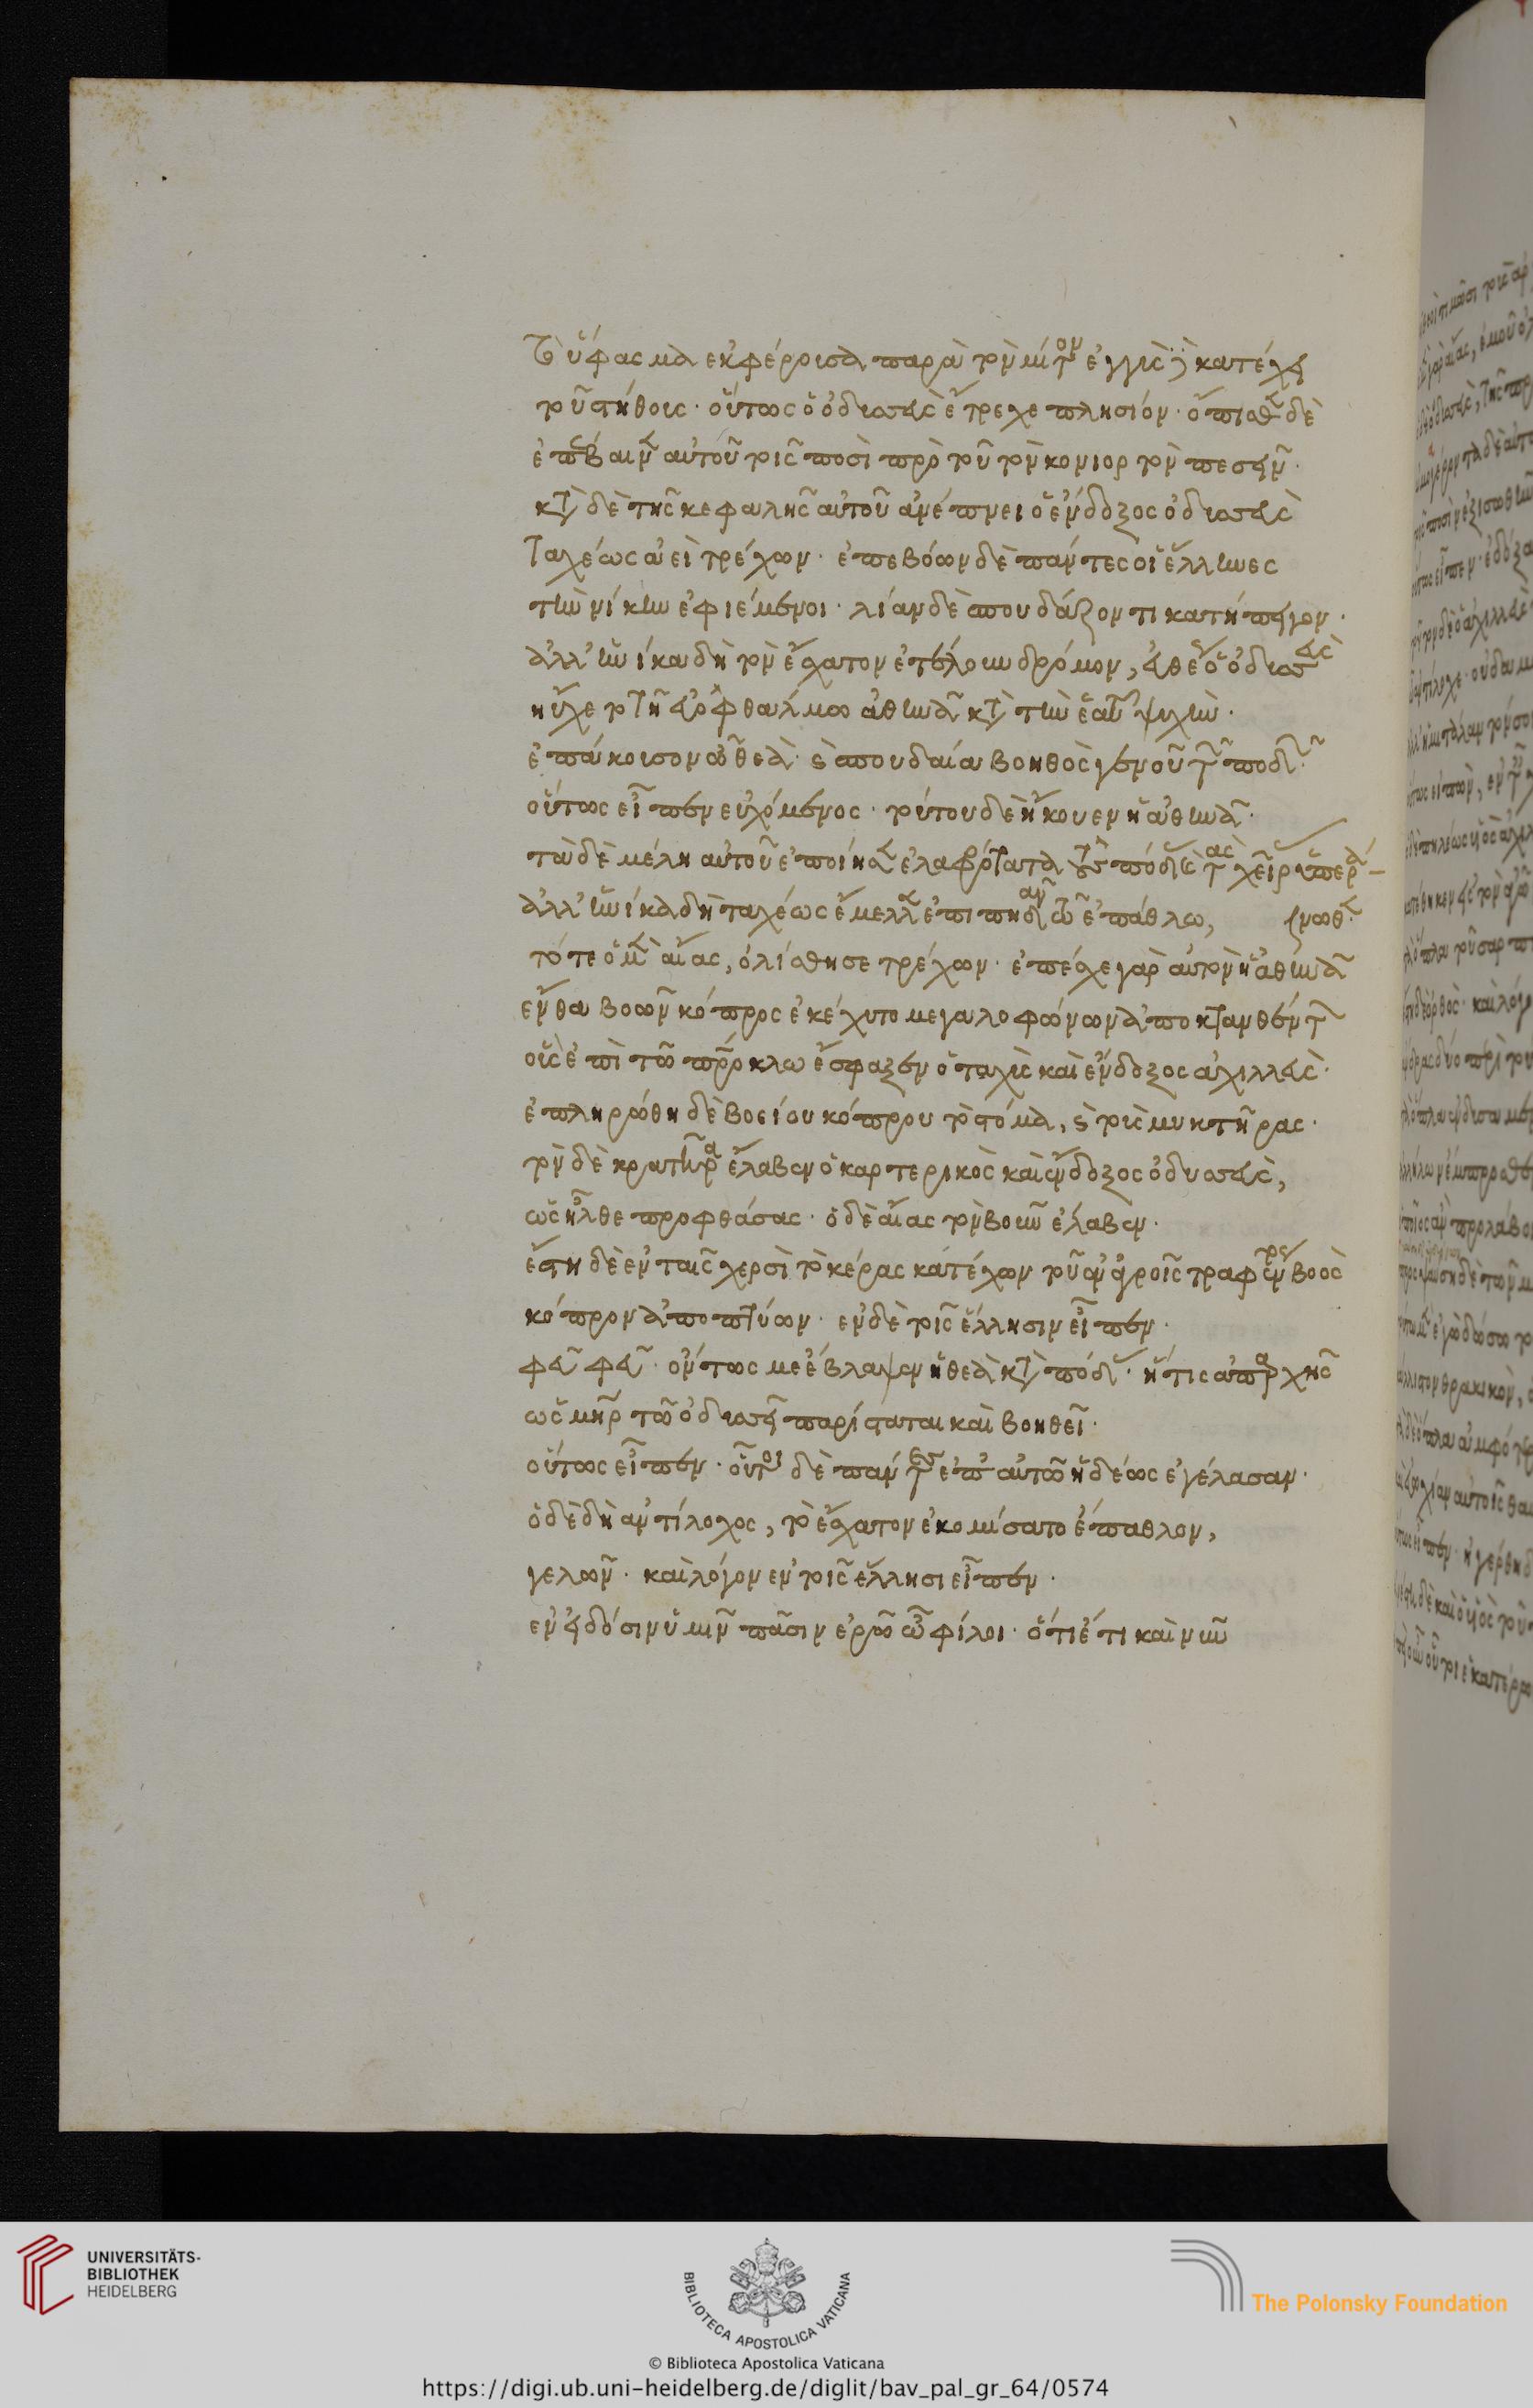 τὸ ὕφασμα ἐκφέρουσα παρὰ τὸν μίτον ἐγγὺς δὲ κατέχει
τοῦ στήθους· οὕτως ὁ ὀδυσσεὺς ἔτρεχε πλησίον· ὄπισθεν δὲ
ἐπέβαινεν αὐτοῦ τοῖς ποσὶ πρὸ τοῦ τὸν κονιορτὸν πεσεῖν·
κατὰ δὲ τῆς κεφαλῆς αὐτοῦ ἀνέπνει ὁ ἔνδοξος ὀδυσσεὺς
ταχέως ἀεὶ τρέχων· ἐπεβόων δὲ πάντες οἱ ἕλληνες
τὴν νίκην ἐφιέμενοι· λίαν δὲ σπουδάζοντι κατήπειγον·
ἀλλ' ἡνίκα δὴ τὸν ἔσχατον ἐτέλουν δρόμον, εὐθέως ὁ ὀδυσσεὺς
ηὔχετο τῇ εὐοφθάλμω ἀθηνᾶ κατὰ τὴν ἑαυτοῦ ψυχὴν·
ἐπάκουσον ὦ θεὰ· καὶ σπουδαία βοηθὸς γενοῦ τῶν ποδῶν·
οὕτως εἶπεν εὐχόμενος· τούτου δὲ ἤκουεν ἡ ἀθηνᾶ·
τὰ δὲ μέλη αὐτοῦ ἐποίησεν ἐλαφρότατα τοὺς πόδας καὶ τὰς χεῖρας ὑπερά-
ἀλλ' ἡνίκα δὴ ταχέως ἔμελλεν ἐπιπηδᾶν τῶ ἐπάθλω, (νωθεν·
τότε ὁ μὲν αἴας, ὀλίσθησε τρέχων· ἐπέσχε γὰρ αὐτὸν ἡ ἀθηνᾶ
ἔνθα βοῶν κόπρος ἐκέχυτο μεγαλοφώνων ἀποκτανθέντων
οὓς ἐπὶ τῶ πατρόκλω ἔσφαξεν ὁ ταχὺς καὶ ἔνδοξος ἀχιλλεὺς·
ἐπληρώθη δὲ βοείου κόπρου τὸ στόμα, καὶ τοὺς μυκτῆρας·
τὸν δὲ κρατῆρα ἔλαβεν ὁ καρτερικὸς καὶ ἔνδοξος ὀδυσσεὺς,
ὡς ἦλθε προφθάσας· ὁ δὲ αἴας τὸν βοῦν ἔλαβεν·
ἔστη δὲ ἐν ταῖς χερσὶ τὸ κέρας κατέχων τοῦ ἐν ἀγροῖς τραφέντος βοὸς
κόπρον ἀποπτύων· ἐν δὲ τοῖς ἕλλησιν εἶπεν·
φεῦ φεῦ· ὄντως με ἔβλαψεν ἡ θεὰ κατὰ πόδας· ἥτις ἀπαρχῆς
ὡς μήτηρ τῶ ὀδυσσεῖ παρίσταται καὶ βοηθεῖ·
οὕτως εἶπεν· οὗτοι δὲ πάντες ἐπ' αὐτῶ ἡδέως ἐγέλασαν·
ὁ δὲ δὴ ἀντίλοχος, τὸ ἔσχατον ἐκομίσατο ἔπαθλον,
γελῶν· καὶ λόγον ἐν τοῖς ἕλλησι εἶπεν·
ἐν εἰδόσιν ὑμῖν πᾶσιν ἐρῶ ὦ φίλοι· ὅτι ἔτι καὶ νῦν
UNIVERSITÄTS-
BIBLIOTHEK
HEIDELBERG
BIBLIOTECA APOSTOLICA VATICANA
The Polonsky Foundation
© Biblioteca Apostolica Vaticana
https://digi.ub.uni-heidelberg.de/diglit/bav_pal_gr_64/0574